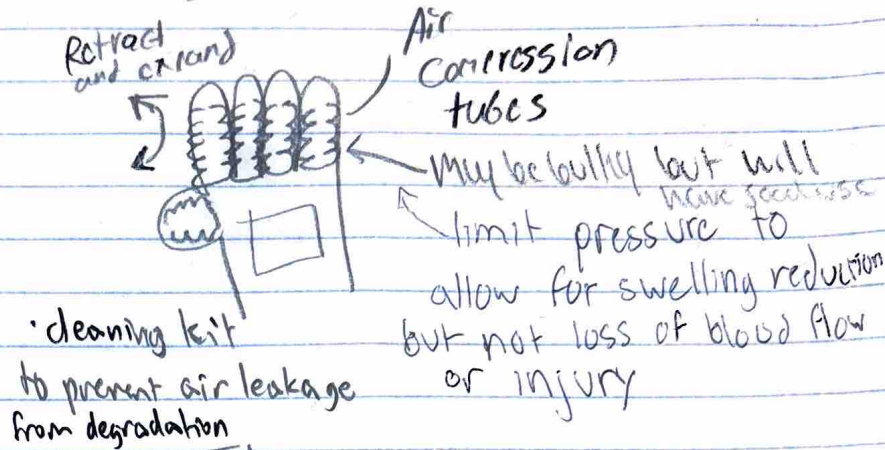 Retract
and expand
Air
comression
tubes
May be bulky but will
have
limit pressure to
allow for swelling reduction
but not loss of blood flow
or injury
· cleaning kit
to prevent air leakage
from degradation